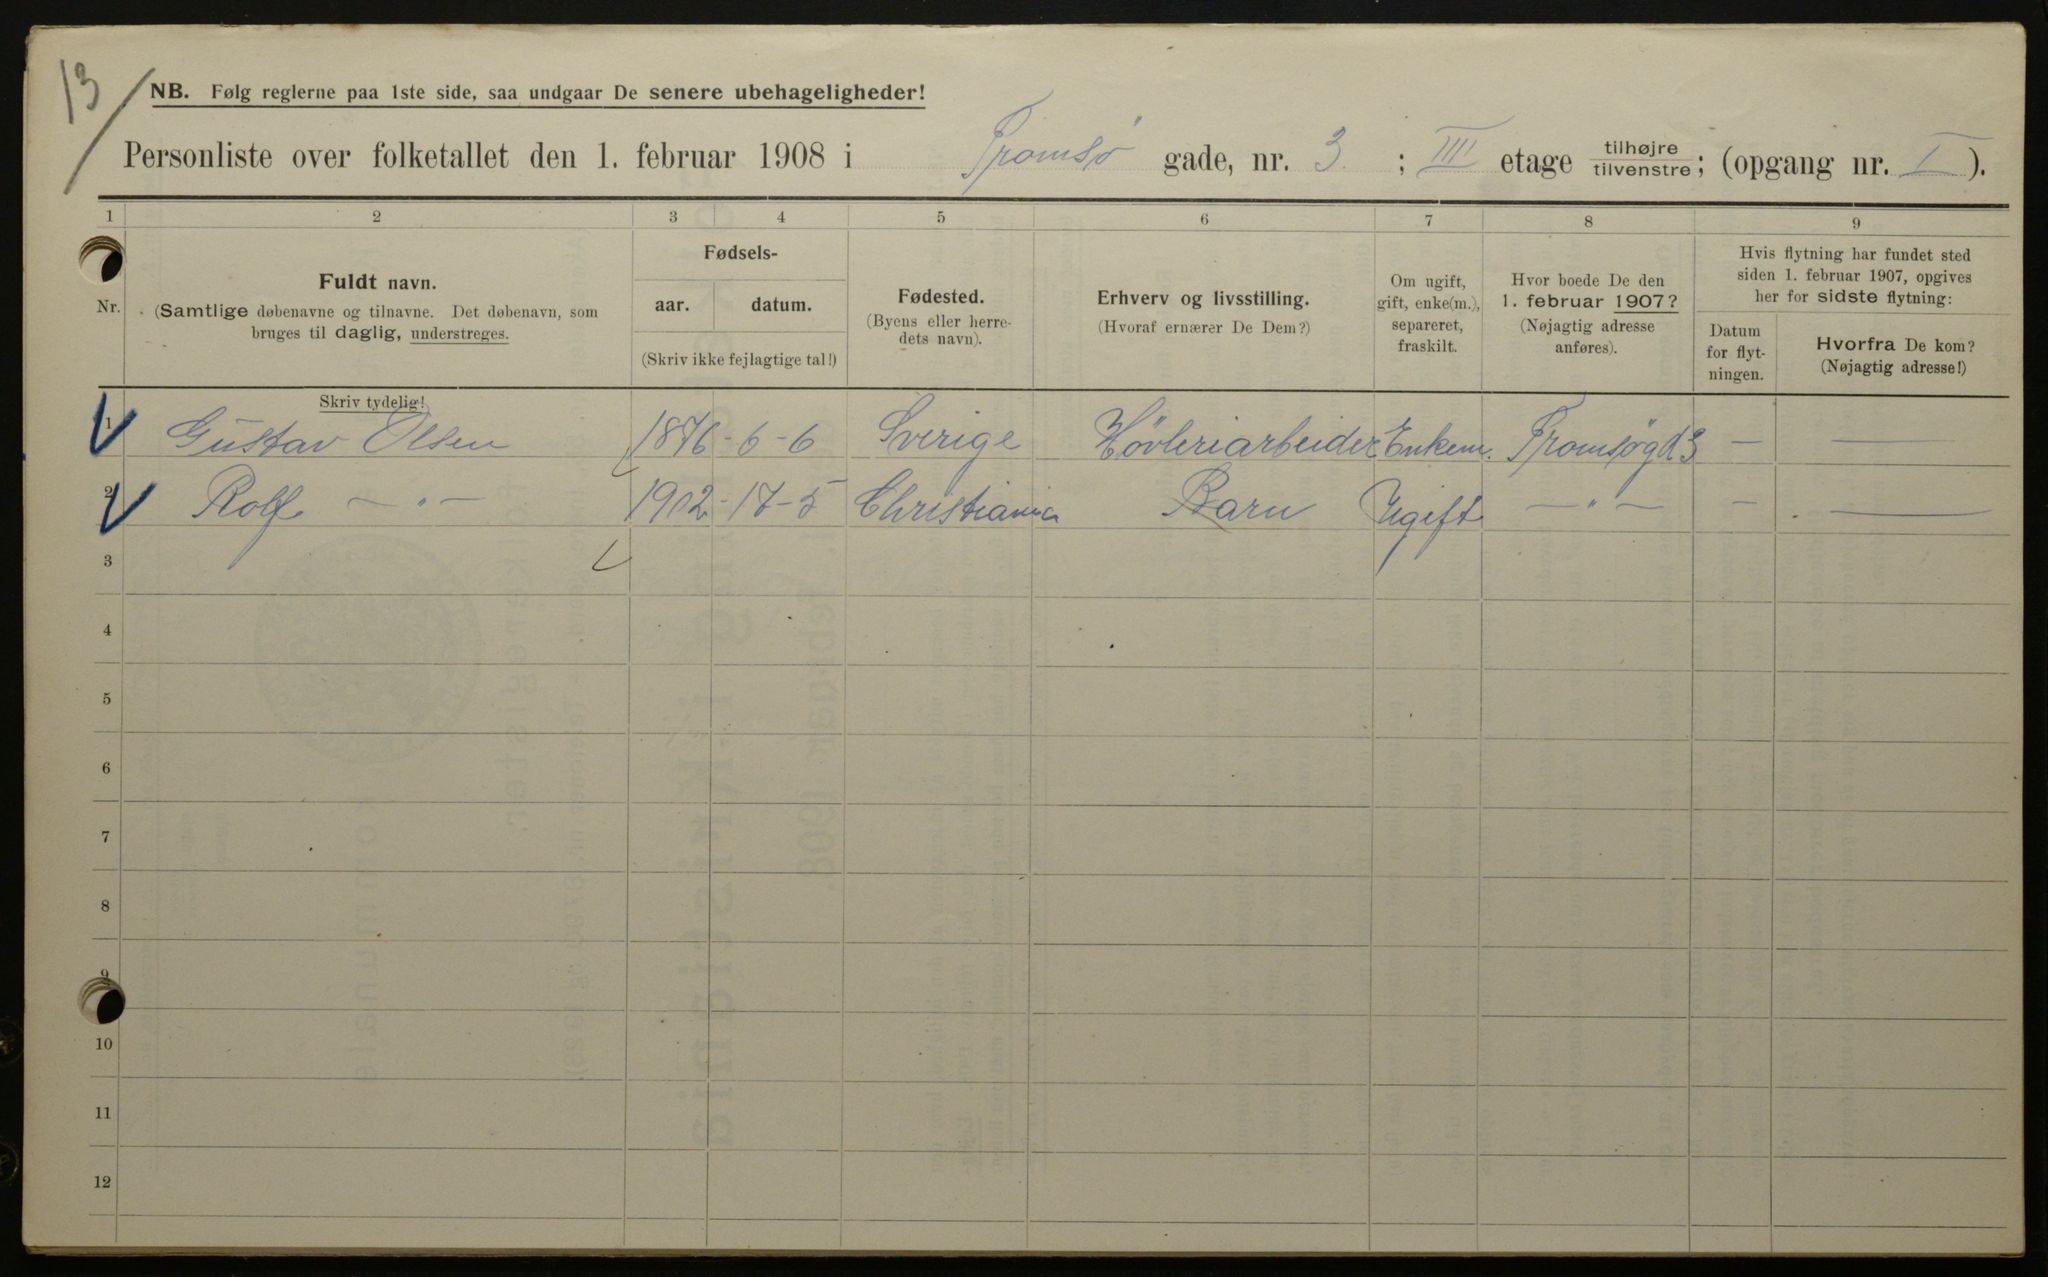 13
NB. Følg reglerne paa 1ste side, saa undgaar De senere ubehageligheder!
Personliste over folketallet den 1. februar 1908 i Tromsø gade, nr. 3 ; III etage tilhøjre tilvenstre; (opgang nr. I ).
1 2 3 4 5 6 7 8 9
Nr.
Fuldt navn.
(Samtlige døbenavne og tilnavne. Det døbenavn, som
bruges til daglig, understreges.
Fødsels-
aar. datum.
(Skriv ikke fejlagtige tal!)
Fødested.
(Byens eller herre-
dets navn).
Erhverv og livsstilling.
(Hvoraf ernærer De Dem?)
Om ugift,
gift, enke(m.),
separeret,
fraskilt.
Hvor boede De den
1. februar 1907?
(Nøjagtig adresse
anføres).
Hvis flytning har fundet sted
siden 1. februar 1907, opgives
her for sidste flytning:
Datum
for flyt-
ningen.
Hvorfra De kom?
(Nøjagtig adresse!)
Skriv tydelig!
1 Gustav Olsen 1876 - 6 - 6 Sverige Høvleriarbeider Enkem. Tromsøgd 3 — —
2 Rolf — " — 1902 - 17 - 5 Christiania Barn Ugift — " — — —
3
4
5
6
7
8
9
10
11
12